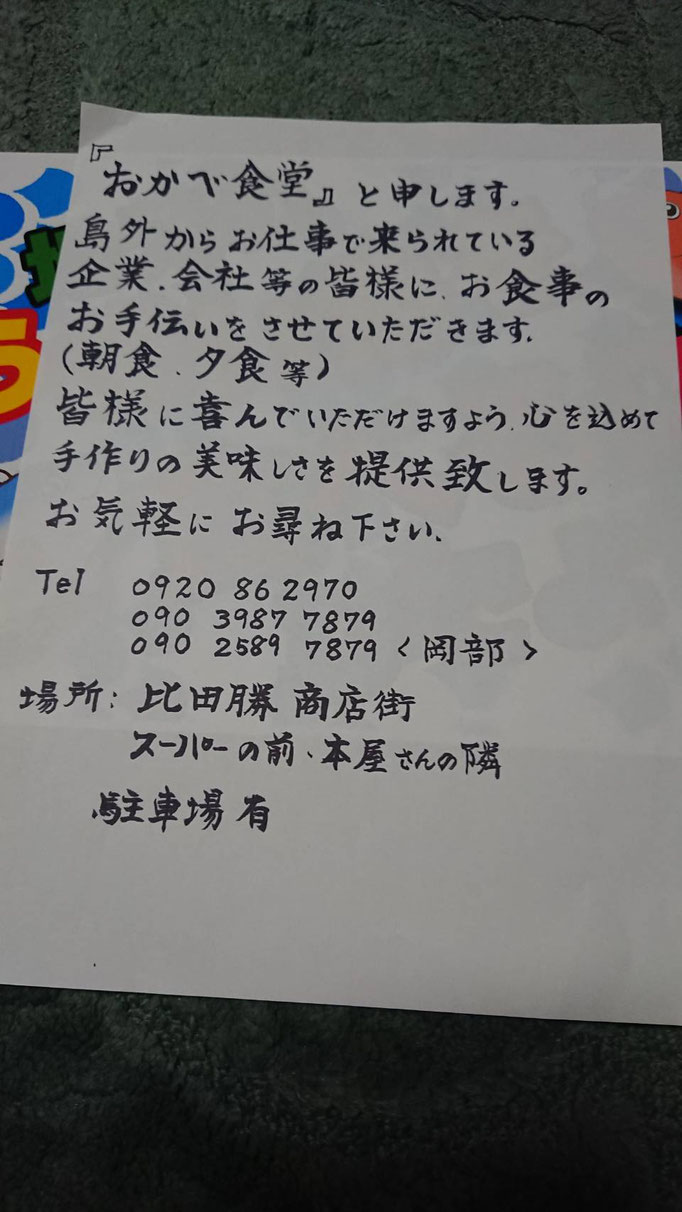 『おかべ食堂』と申します。
島外からお仕事で来られている
企業、会社等の皆様に、お食事の
お手伝いをさせていただきます。
(朝食、夕食等)
皆様に喜んでいただけますよう、心を込めて
手作りの美味しさを提供致します。
お気軽にお尋ね下さい。
Tel 0920 86 2970
090 3987 7879
090 2589 7879 <岡部>
場所: 比田勝商店街
スーパーの前、本屋さんの隣
駐車場有